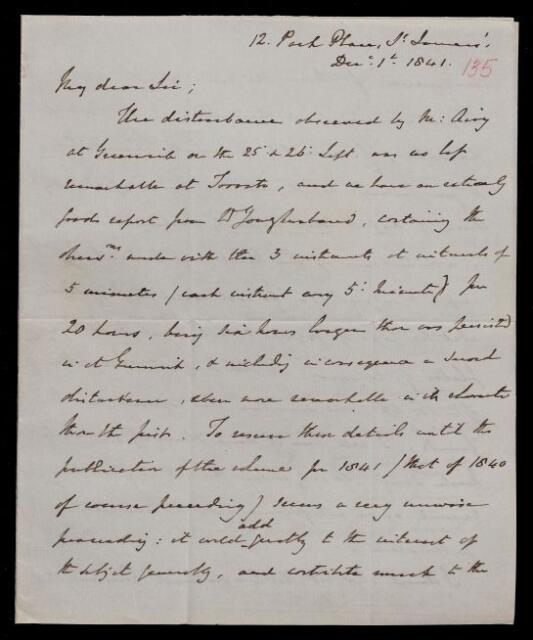 12. Park Place, St. James's.
Decr. 1st. 1841.
135
My dear Sir;
The disturbance observed by Mr. Airy
at Greenwich on the 25 & 26 Sept. was no less
remarkable at Toronto, and we have an extremely
good report from Lt Younghusband, containing the
obsns. made with the 3 instruments at intervals of
5 minutes (each instrumt every 5 minutes) for
20 hours, being six hours longer than was persisted
in at Greenwich, & including in consequence a second
disturbance, even more remarkable in its character
than the first. To reserve these details until the
publication of the volume for 1841 (that of 1840
of course preceding) seems a very unwise
proceeding: it would add greatly to the interest of
the subject generally, and contribute much to the